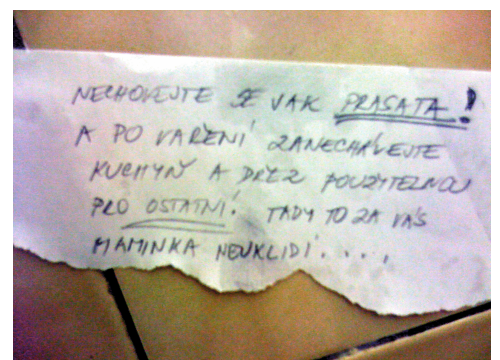 NECHOVEJTE SE JAK PRASATA!
A PO VAŘENÍ ZANECHÁVEJTE
KUCHYŇ A DŘEZ POUŽITELNOU
PRO OSTATNÍ! TADY TO ZA VÁS
MAMINKA NEUKLIDÍ....